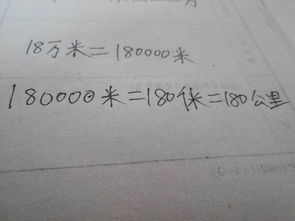 18万米=180000米
180000米=180仟米=180公里